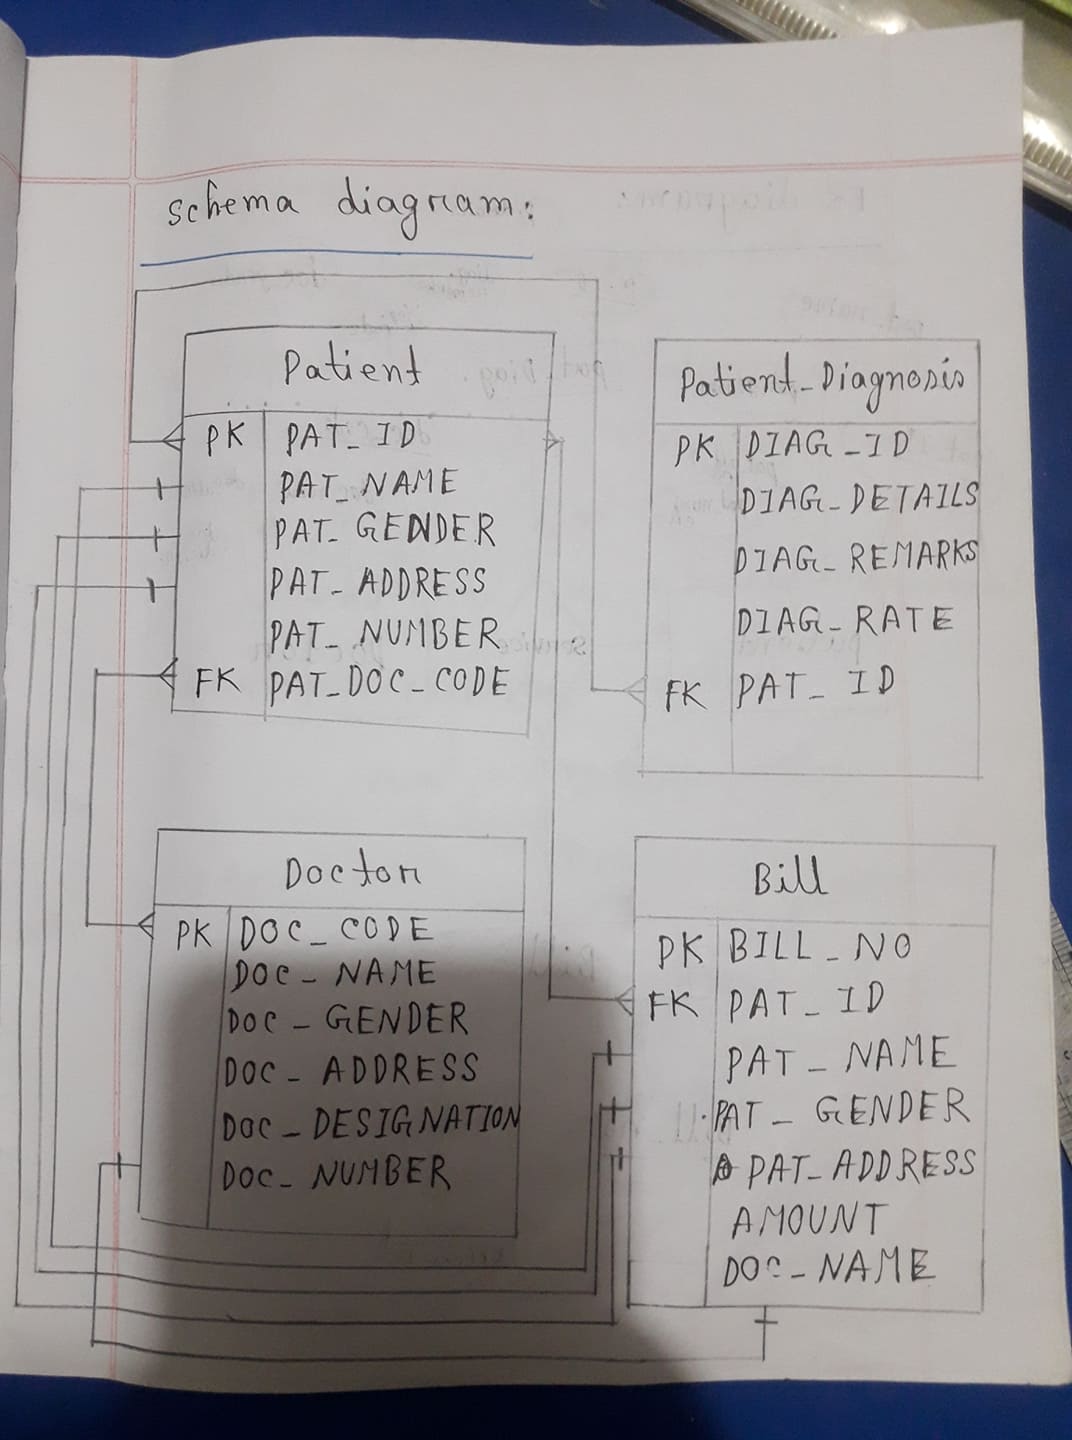 schema diagram:
Patient
PK PAT_ID
PAT_NAME
PAT_GENDER
PAT_ADDRESS
PAT_NUMBER
FK PAT_DOC_CODE
Patient_Diagnosis
PK DIAG_ID
DIAG_DETAILS
DIAG_REMARKS
DIAG_RATE
FK PAT_ID
Doctor
PK DOC_CODE
DOC_NAME
DOC_GENDER
DOC_ADDRESS
DOC_DESIGNATION
DOC_NUMBER
Bill
PK BILL_NO
FK PAT_ID
PAT_NAME
PAT_GENDER
PAT_ADDRESS
AMOUNT
DOC_NAME